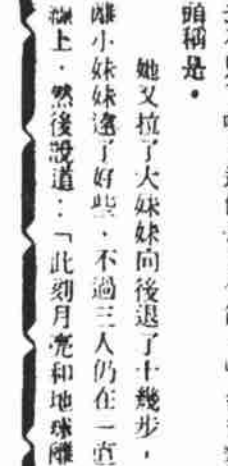 頭稱是。
她又拉了大妹妹向後退了十幾步，
離小妹妹遠了好些，不過三人仍在一直
線上，然後說道：「此刻月亮和地球離